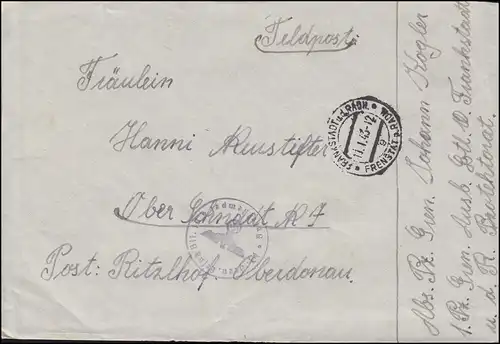 Feldpost.
Fräulein
Hanni Neustifter
Ober
Post: Ritzlhof Oberdonau.
FRANKSTADT a.d. RADH.
11.1.43-12
FRENŠTÁT
Abs. Pz. Gren. Johann Kogler
1. Pz. Gren. Ausb. Btl. Frankstadt
u. d. R. Protektorat.